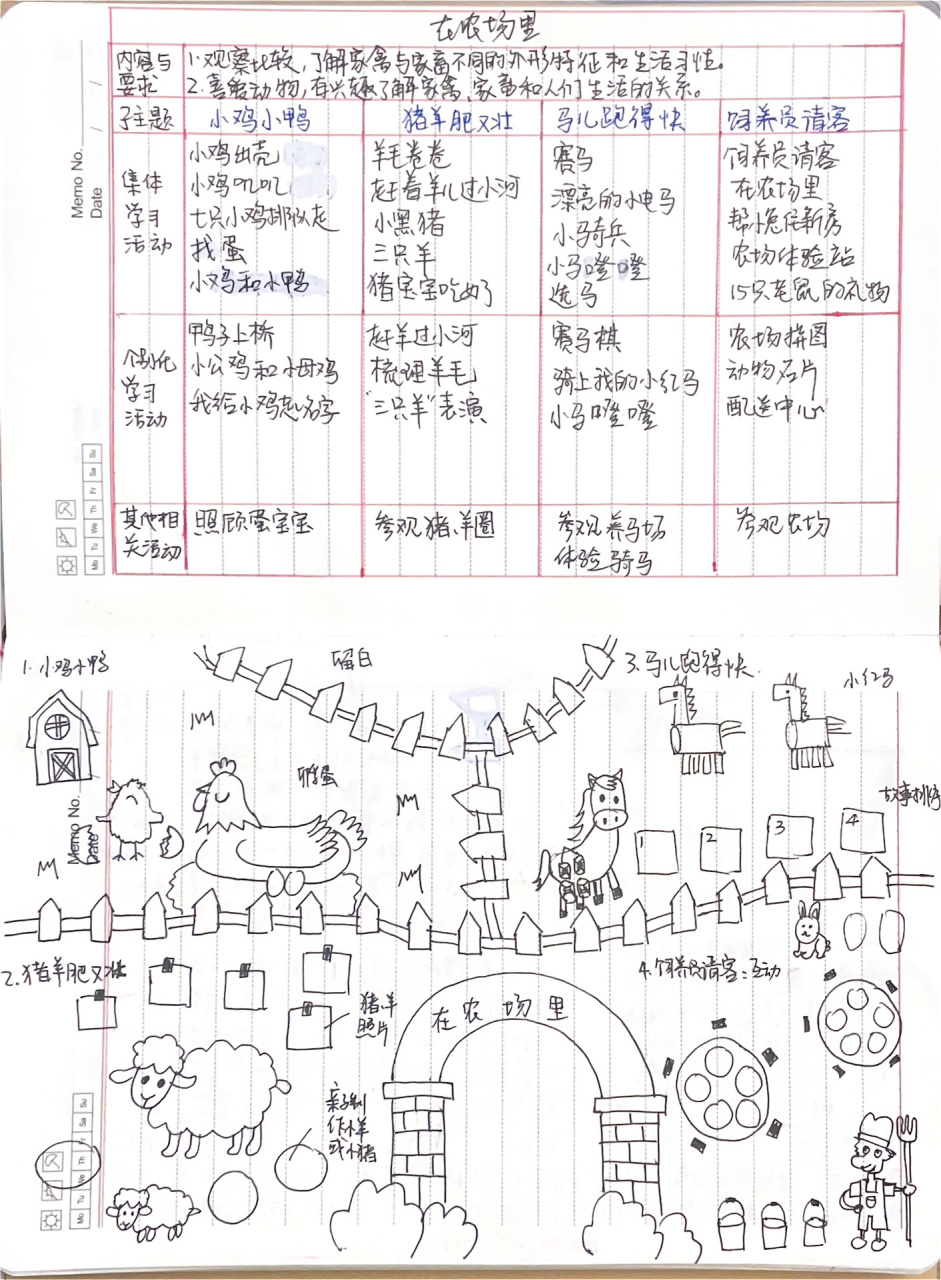 在农场里
内容与要求
1.观察比较,了解家禽与家畜不同的外形特征和生活习性。
2.喜爱动物,有兴趣了解家禽、家畜和人们生活的关系。
子主题
小鸡小鸭
猪羊肥又壮
马儿跑得快
饲养员请客
集体
学习
活动
小鸡出壳
小鸡叽叽
七只小鸡排队走
找蛋
小鸡和小鸭
羊毛卷卷
赶着羊儿过小河
小黑猪
三只羊
猪宝宝吃奶了
赛马
漂亮的小电马
小骑兵
小马噔噔
选马
饲养员请客
在农场里
帮小兔住新房
农场体验站
15只老鼠的礼物
个别化
学习
活动
鸭子上桥
小公鸡和小母鸡
我给小鸡起名字
赶羊过小河
梳理羊毛
"三只羊"表演
赛马棋
骑上我的小红马
小马噔噔
农场拼图
动物名片
配送中心
其他相
关活动
照顾蛋宝宝
参观猪、羊圈
参观养马场
体验骑马
参观农场
Memo No.
Date
Mo Tu We Th Fr Sa Su
1.小鸡小鸭
留白
3.马儿跑得快
小红马
孵蛋
故事排序
1
2
3
4
Memo No.
Date
2.猪羊肥又壮
猪、羊
照片
在农场里
4.饲养员请客:互动
亲子制
作小羊
或小猪
Mo Tu We Th Fr Sa Su